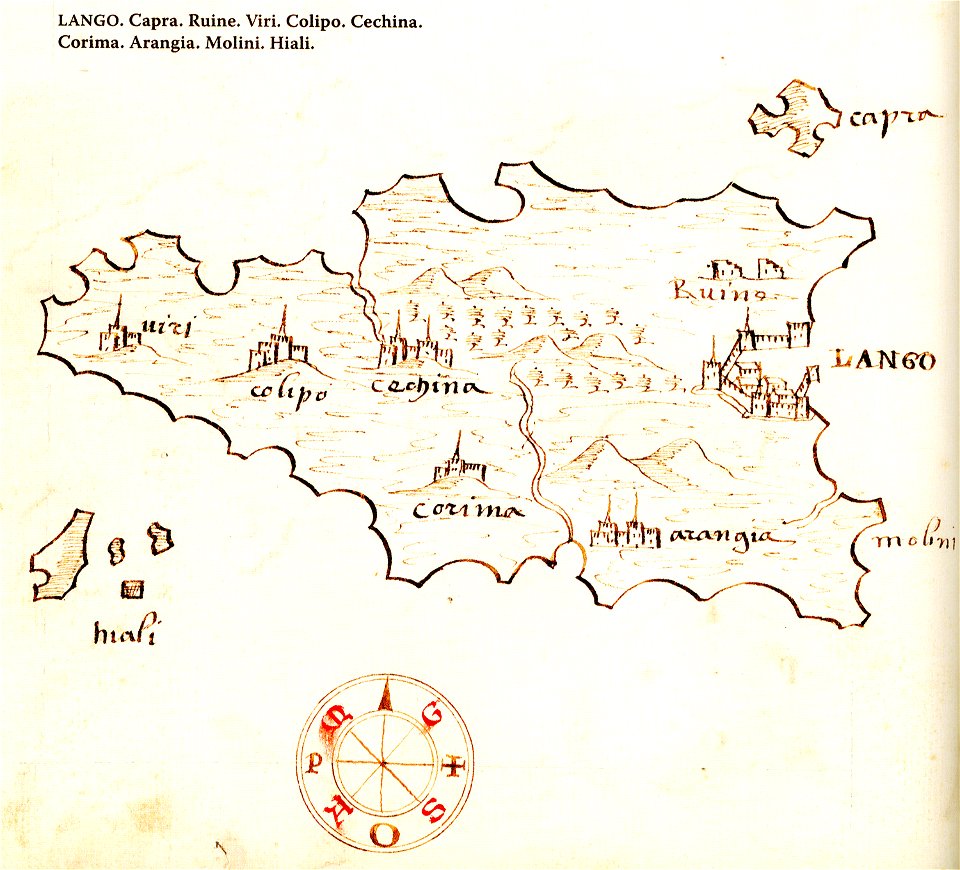 LANGO. Capra. Ruine. Viri. Colipo. Cechina.
Corima. Arangia. Molini. Hiali.
capra
Ruine
uiri
LANGO
colipo
cechina
corima
arangia
molini
hiali
M G
P ✠
A S
O